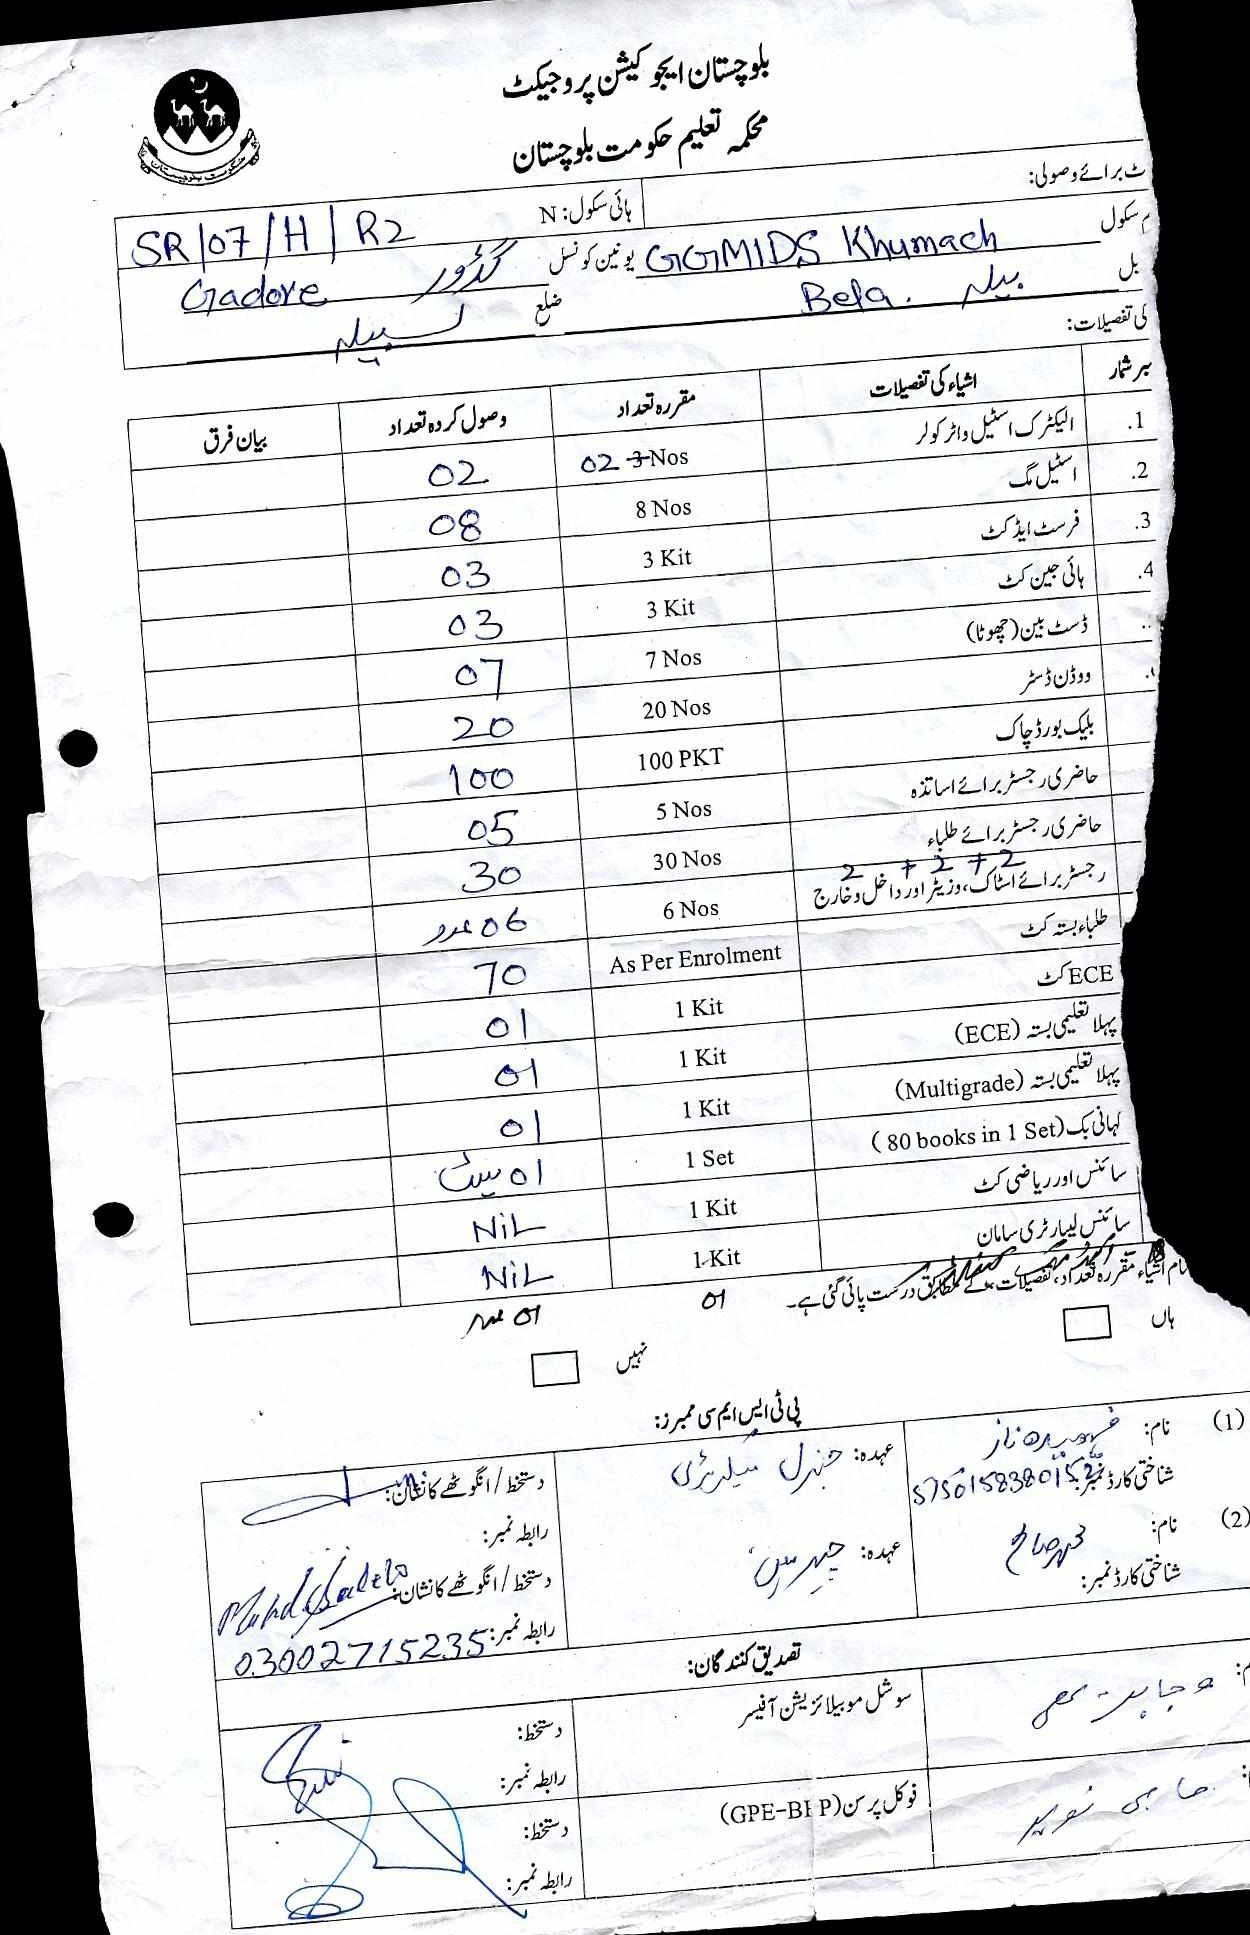 بلوچستان ایجوکیشن پروجیکٹ
محکمہ تعلیم حکومت بلوچستان
ٹ برائے وصولی:
ہائی سکول: N SR/07/H/R2
م سکول GGMIDS Khumach یونین کونسل گڈور Gadore
بل بیلہ Bela. ضلع لسبیلہ
کی تفصیلات:
بر شمار اشیاء کی تفصیلات مقررہ تعداد وصول کردہ تعداد بیان فرق
1. الیکٹرک اسٹیل واٹر کولر 02 3 Nos 02
2. اسٹیل مگ 8 Nos 08
3. فرسٹ ایڈ کٹ 3 Kit 03
4. ہائی جین کٹ 3 Kit 03
ڈسٹ بین (چھوٹا) 7 Nos 07
ووڈن ڈسٹر 20 Nos 20
بلیک بورڈ چاک 100 PKT 100
حاضری رجسٹر برائے اساتذہ 5 Nos 05
حاضری رجسٹر برائے طلباء 30 Nos 30
2 + 2 + 2
رجسٹر برائے اسٹاک، وزیٹر اور داخل و خارج 6 Nos 06 عدد
طلباء بستہ کٹ As Per Enrolment 70
ECE کٹ 1 Kit 01
پہلا تعلیمی بستہ (ECE) 1 Kit 01
پہلا تعلیمی بستہ (Multigrade) 1 Kit 01
کہانی بک (80 books in 1 Set) 1 Set 01 سیٹ
سائنس اور ریاضی کٹ 1 Kit NiL
سائنس لیبارٹری سامان 1 Kit NiL
01 01 عدد
مام اشیاء مقررہ تعداد، تفصیلات کے مطابق درست پائی گئی ہے۔
ہاں
نہیں
پی ٹی ایس ایم سی ممبرز:
(1) نام: فہمیدہ ناز عہدہ: جنرل سیکریٹری دستخط / انگوٹھے کا نشان:
شناختی کارڈ نمبر: رابطہ نمبر:
(2) نام: محمد صالح عہدہ: چیرمین دستخط / انگوٹھے کا نشان:
شناختی کارڈ نمبر: رابطہ نمبر: 03002715235
تصدیق کنندگان:
م: سوشل موبیلائزیشن آفیسر دستخط:
رابطہ نمبر:
فوکل پرسن (GPE-BEP) دستخط:
رابطہ نمبر: